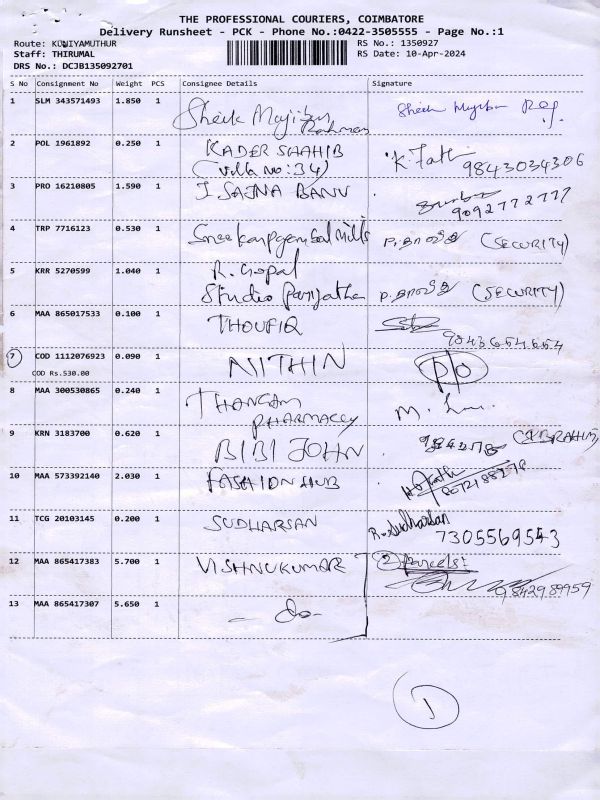 THE PROFESSIONAL COURIERS, COIMBATORE
Delivery Runsheet - PCK - Phone No.:0422-3505555 - Page No.:1
Route: KUNIYAMUTHUR RS No.: 1350927
Staff: THIRUMAL RS Date: 10-Apr-2024
DRS No.: DCJB135092701
S No Consignment No Weight PCS Consignee Details Signature
1 SLM 343571493 1.850 1 Sheik Mujibur Rahman Sheik Mujibur
2 POL 1961892 0.250 1 KADER SHAHIB K. Fath
(Villa no: 34) 9843034306
3 PRO 16210805 1.590 1 I SAJNA BANU
9092772777
4 TRP 7716123 0.530 1 Mills (SECURITY)
5 KRR 5270599 1.040 1 R. Gopal (SECURITY)
Studio
6 MAA 865017533 0.100 1 THOUFIQ
9843654654
7 COD 1112076923 0.090 1 NITHIN P/O
COD Rs.530.00
8 MAA 300530865 0.240 1 THANGAM M.
PHARMACCY
9 KRN 3183700 0.620 1 BIBI JOHN (IBRAHIM)
10 MAA 573392140 2.030 1 FASHION HUB
11 TCG 20103145 0.200 1 SUDHARSAN R. Sudharsan
7305569543
12 MAA 865417383 5.700 1 VISHNUKUMAR (2) Parcels
9842989959
13 MAA 865417307 5.650 1 - do -
1